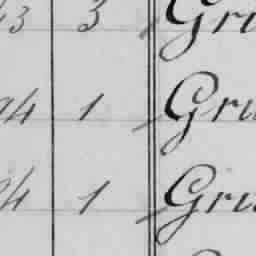 3 3 Gru
94 1 Gru
94 1 Gru